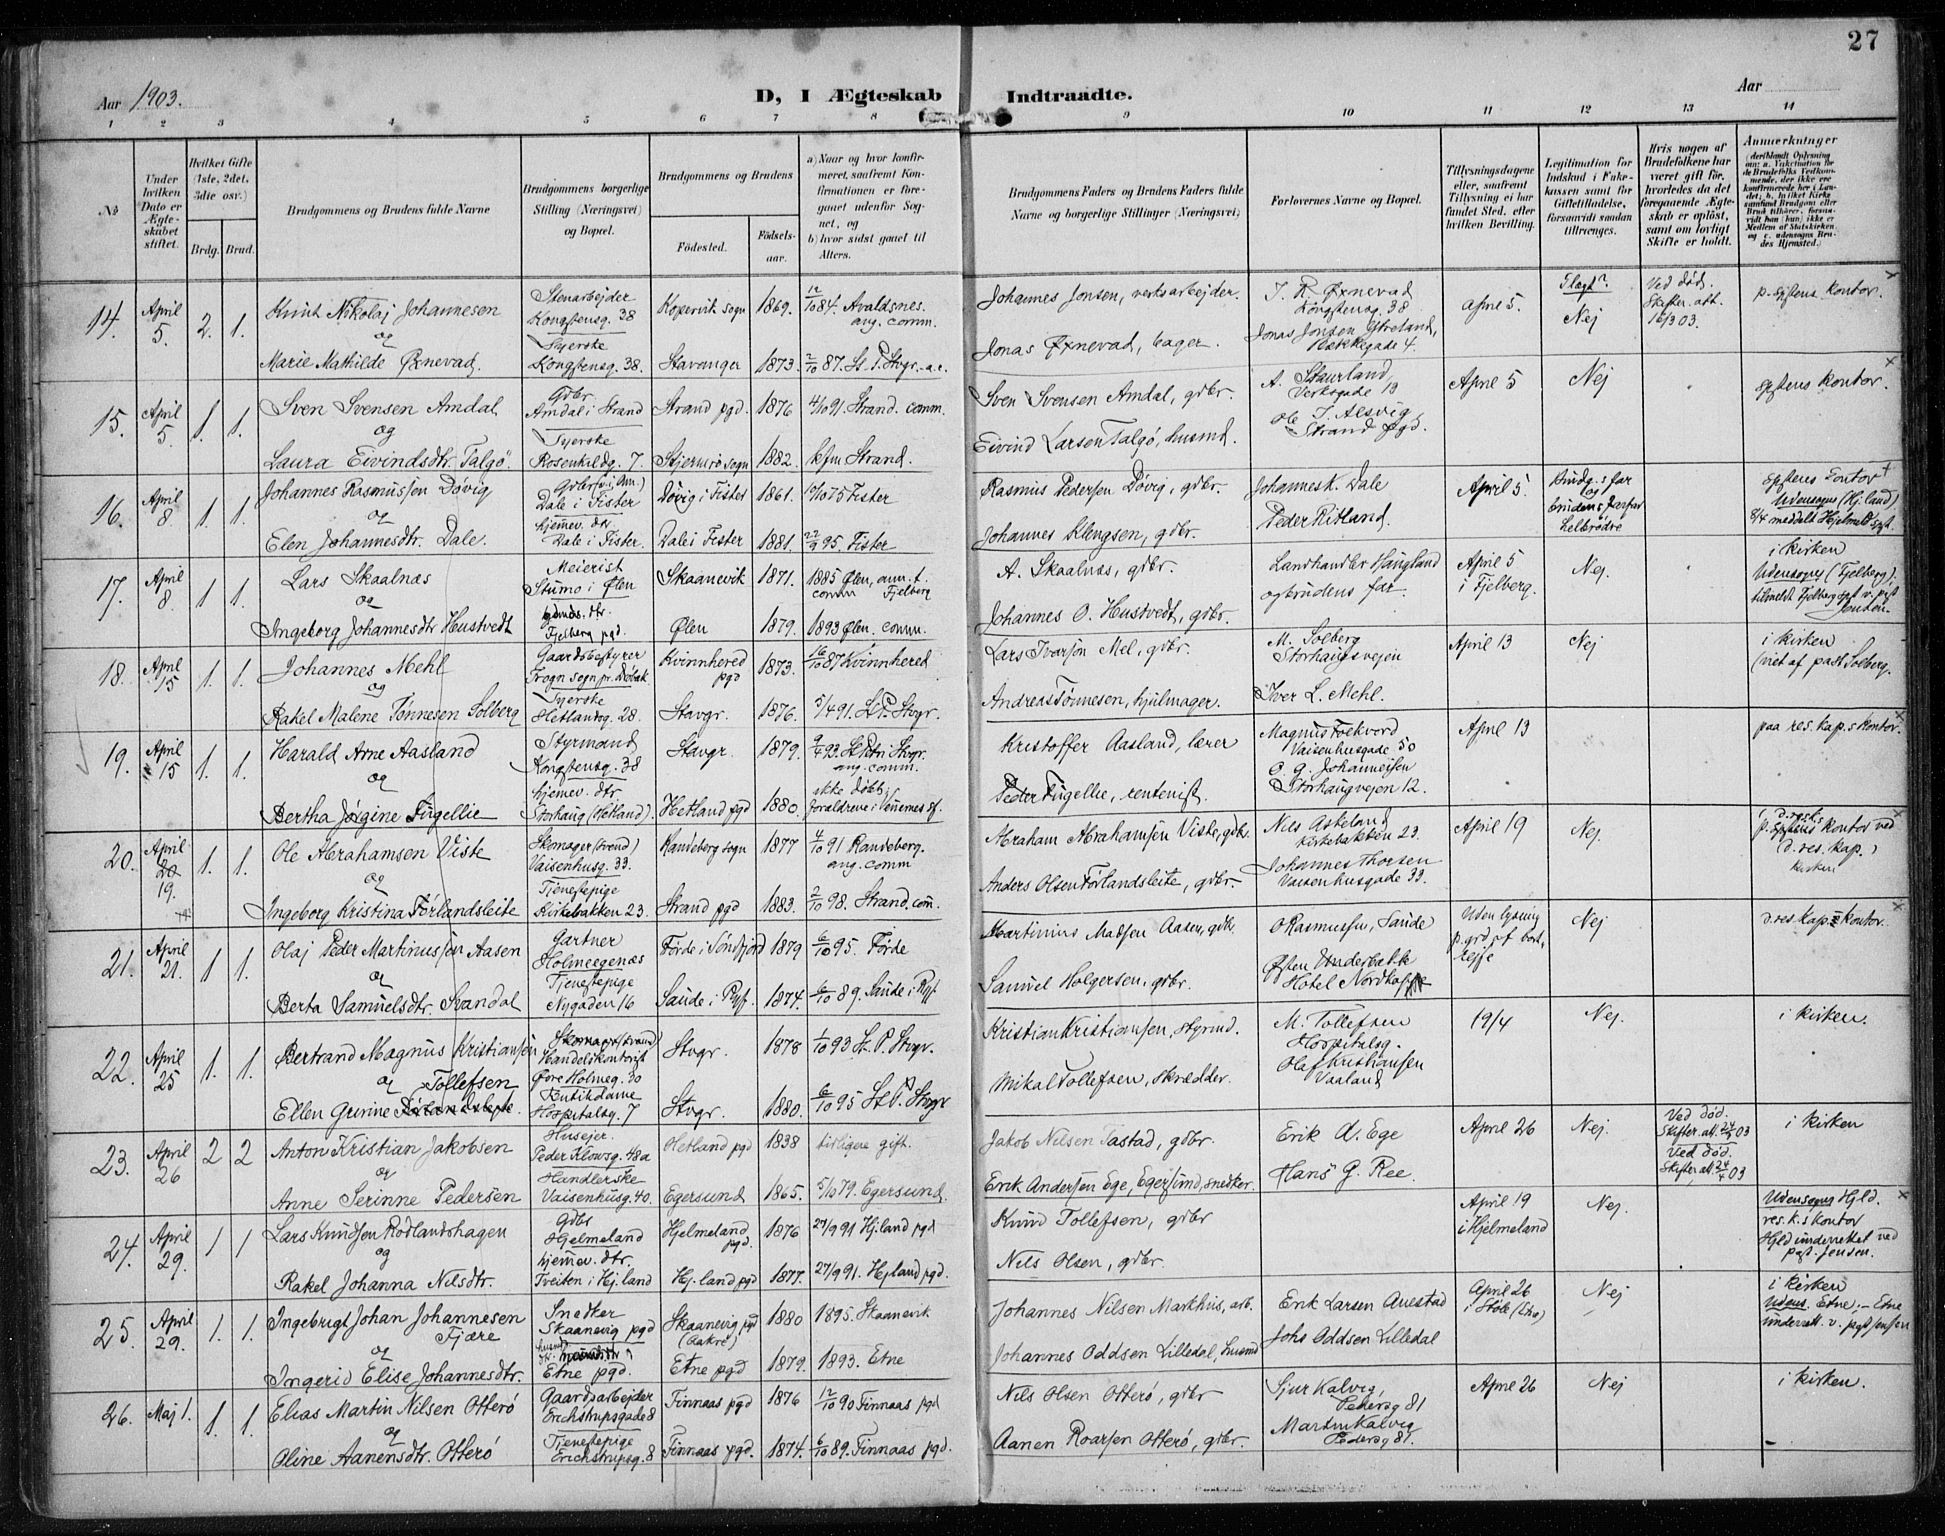 27
Aar 1903.
D, I Ægteskab Indtraadte.
Aar
1 2 3 4 5 6 7 8 9 10 11 12 13 14
No
Under hvilken Dato er Ægteskabet stiftet.
Hvilket Gifte (1ste, 2det, 3die osv.)
Brdg. Brud.
Brudgommens og Brudens fulde Navne
Brudgommens borgerlige Stilling (Næringsvei) og Bopæl.
Brudgommens og Brudens
Fødested.
Fødsels-aar.
a) Naar og hvor konfirmeret, saafremt Konfirmationen er foregaaet udenfor Sognet, og
b) hvor sidst gaaet til Alters.
Brudgommens Faders og Brudens Faders fulde Navne og borgerlige Stillinger (Næringsvei)
Forlovernes Navne og Bopæl.
Tillysningsdagene eller, saafremt Tillysning ei har fundet Sted, efter hvilken Bevilling.
Legitimation for Indskud i Enkekassen samt for Giftetilladelse, forsaavidt saadan tiltrænges.
Hvis nogen af Brudefolkene har været gift før, hvorledes da det foregaaende Ægteskab er opløst, samt om lovligt Skifte er holdt.
Anmærkninger
14. April 5. 2. 1. Knut Nikolaj Johannesen Stenarbejder Kongstensg. 38 Kopervik sogn 1869. 12/10 84. Avaldsnes. ang. comm. Johannes Jonsen, verksarbejder. J. R. Øxnevad Kongstensg. 38 April 5. Slægt? Nej Ved død. Skifter. att. 16/3 03. p. Spstens kontor.
og
Marie Mathilde Øxnevad. Syerske Kongstensg. 38. Stavanger 1873. 2/10 87. St. P. Stvgr. a.c. Jonas Øxnevad, bager. Jonas Jonsen Ytreland, Bækkegade 4.
15. April 5. 1. 1. Sven Svensen Amdal, Gdbr. Amdal i Strand Strand pgd. 1876 4/10 91. Strand. comm. Sven Svensen Amdal, gdbr. A. Staurland, Verksgade 19 April 5 Nej Spstens kontor.
og
Laura Eivindsdtr. Talgø. Syerske Rosenkildg. 7. Stjernrø sogn 1882. kfm Strand. Eivind Larsen Talgø, husmd. Ole T. Alsvig Strand pgd.
16. April 8. 1. 1. Johannes Rasmussen Døvig Dale i Fister Døvig i Fister 1861. Fister Rasmus Pedersen Døvig, gdbr. Johannes K. Dale April 5. Brudg.s far og brudens farfar helbrødre Spstens kontor Udensogns (Hj.land)
og
Elen Johannesdtr. Dale. hjemev. dtr Dale i Fister. Dale i Fister 1881. 27/9 95. Fister Johannes Klengsen, gdbr. Peder Ritland.
17. April 8. 1. 1. Lars Skaalnæs Meierist Stumo i Ølen Skaanevik 1871. 1885 Ølen, comm Fjelberg A. Skaalnæs, gdbr. Landhandler Haugland April 5 i Fjelberg. Nej. i kirken Udensogns (Fjelberg),
og
Ingeborg Johannesdtr Hustvedt Fjelberg pgd. Ølen 1879. 1893 Ølen. comm. Johannes O. Hustvedt, gdbr. og brudens far.
18. April 15 1. 1. Johannes Mehl Gaardsbestyrer Frogn sogn pr. Drøbak. Kvinnhered pgd 1873. 16/10 87 Kvinnhered Lars Ivarson Mel, gdbr. M. Solberg Storhaugsvejen April 13 Nej i kirken (viet af past. Solberg.
og
Rakel Malene Tønnesen Solberg Syerske Hetlandsg. 28. Stavgr. 1876. 5/4 91. St. P. Stvgr. Andreas Tønnesen, hjulmager. Iver L. Mehl.
19. April 15 1. 1. Harald Arne Aasland Styrmand Kongstensg. 38 Stavgr. 1879. 9/4 93. St. Petri Stvgr. ang. comm. Kristoffer Aasland, lærer Magnus Foekvord Vaisenhusgade 50 April 13 paa res. kap.s kontor.
og
Bertha Jørgine Fugellie hjemev. dtr Storhaug (Hetland). Hetland pgd 1880. ikke døbt, Peder Fugellie, rentenist. O. G. Johannesen Storhaugvejen 12.
20. April 20 19. 1. 1. Ole Abrahamsen Viste Skomager (svend) Vaisenhusg. 33. Randeberg sogn 1877 4/10 91 Randeberg. ang. comm Abraham Abrahamsen Viste, gdbr. Nils Askeland Kirkebakken 23. April 19 Nej. p. Spstens kontor ved d. res. kap.
og
Ingeborg Kristina Førlandsleite Tjenestepige Kirkebakken 23. Strand pgd 1883. 2/10 98. Strand. com. Anders Olsen Førlandsleite, gdbr. Johannes Thorsen Vaisenhusgade 33.
21. April 21. 1 1. Olaj Peder Martinussen Aasen Gartner Holmeegenæs Førde i Søndfjord 1879 6/10 95. Førde Martinius Madsen Aasen, gdbr. O Rasmussen, Saude Uden lysning p. grd af bortrejse Nej d. res. kap.s kontor.
og
Berta Samuelsdtr. Svandal Tjenestepige Nygaden 16 Saude i Ryf. 1874. 6/10 89. Saude i Ryf Samuel Holgersen, gdbr. Østen Underbakke Hotel Nordkap
22. April 25 1. 1. Bertrand Magnus Kristiansen Handelskontorist Øvre Holmeg. 30 Stvgr. 1878 1/10 93 St. P. Stvgr. Kristian Kristiansen, styrmd. M. Tollefsen Hospitalsg. 19/4 Nej. i kirken.
og Tollefsen
Ellen Gurine Butikdame Hospitalsg. 7 Stvgr. 1880. 6/10 95 St. P. Stvgr Mikal Tollefsen, skrædder. Olaf Kristiansen Vaaland
23. April 26 2 2 Anton Kristian Jakobsen Husejer. Peder Klowsg. 48a Hetland pgd 1838 tidligere gift. Jakob Nilsen Tastad, gdbr. Erik A. Ege April 26 Nej. Ved død. Skifter. att. 03 i kirken
og
Anne Serinne Pedersen Handlerske Vaisenhusg. 40. Egersund 1865. 5/10 79. Egersund. Erik Andersen Ege, Egersund, snedker. Hans G. Ree. Ved død. Skifter. att. 24/4 03
24. April 29. 1 1 Lars Knudsen Rødlandshagen Gdbr Hjelmeland Hjelmeland pgd. 1876 27/9 91 Hj.land pgd Knud Tollefsen, gdbr April 19 i Hjelmeland Nej. Udensogns Hjld. res. k.s kontor Hjld underrettet ved pgst. Jensen.
og
Rakel Johanna Nilsdtr. hjemev. dtr. Tveiten i Hj.land Hj.land pgd 1877. 27/9 91. Hjland pgd. Nils Olsen, gdbr.
25. April 29. 1. 1. Ingebrigt Johan Johannesen Fjære Snedker Skaanevig pgd Skaanevig pgd (Aakre) 1880 1895. Skaanevik Johannes Nilsen Markhus, arb. Erik Larsen Auestad April 26 Nej i kirken Udens. Etne; - Etne underett. v. pgst Jensen
og
Ingerid Elise Johannesdtr. Etne pgd. Etne pgd 1879. 1893. Etne Johannes Oddsen Lilledal, husmd Johs Oddsen Lilledal
26. Maj 1. 1. 1. Elias Martin Nilsen Otterø Gaardsarbejder Erichstrupsgade 8 Finnaas pgd 1876 12/10 90 Finnaas pgd Nils Olsen Otterø, gdbr Sjur Kalvig, Pedersg 81 April 26 Nej i kirken.
og
Oline Aanensdtr. Otterø Tjenestepige Erichstrupsg. 8 Finnaas pgd. 1874. 6/10 89. Finnaas pgd. Aanen Roarsen Otterø, gdbr. Martin Kalvig Pedersg 81.